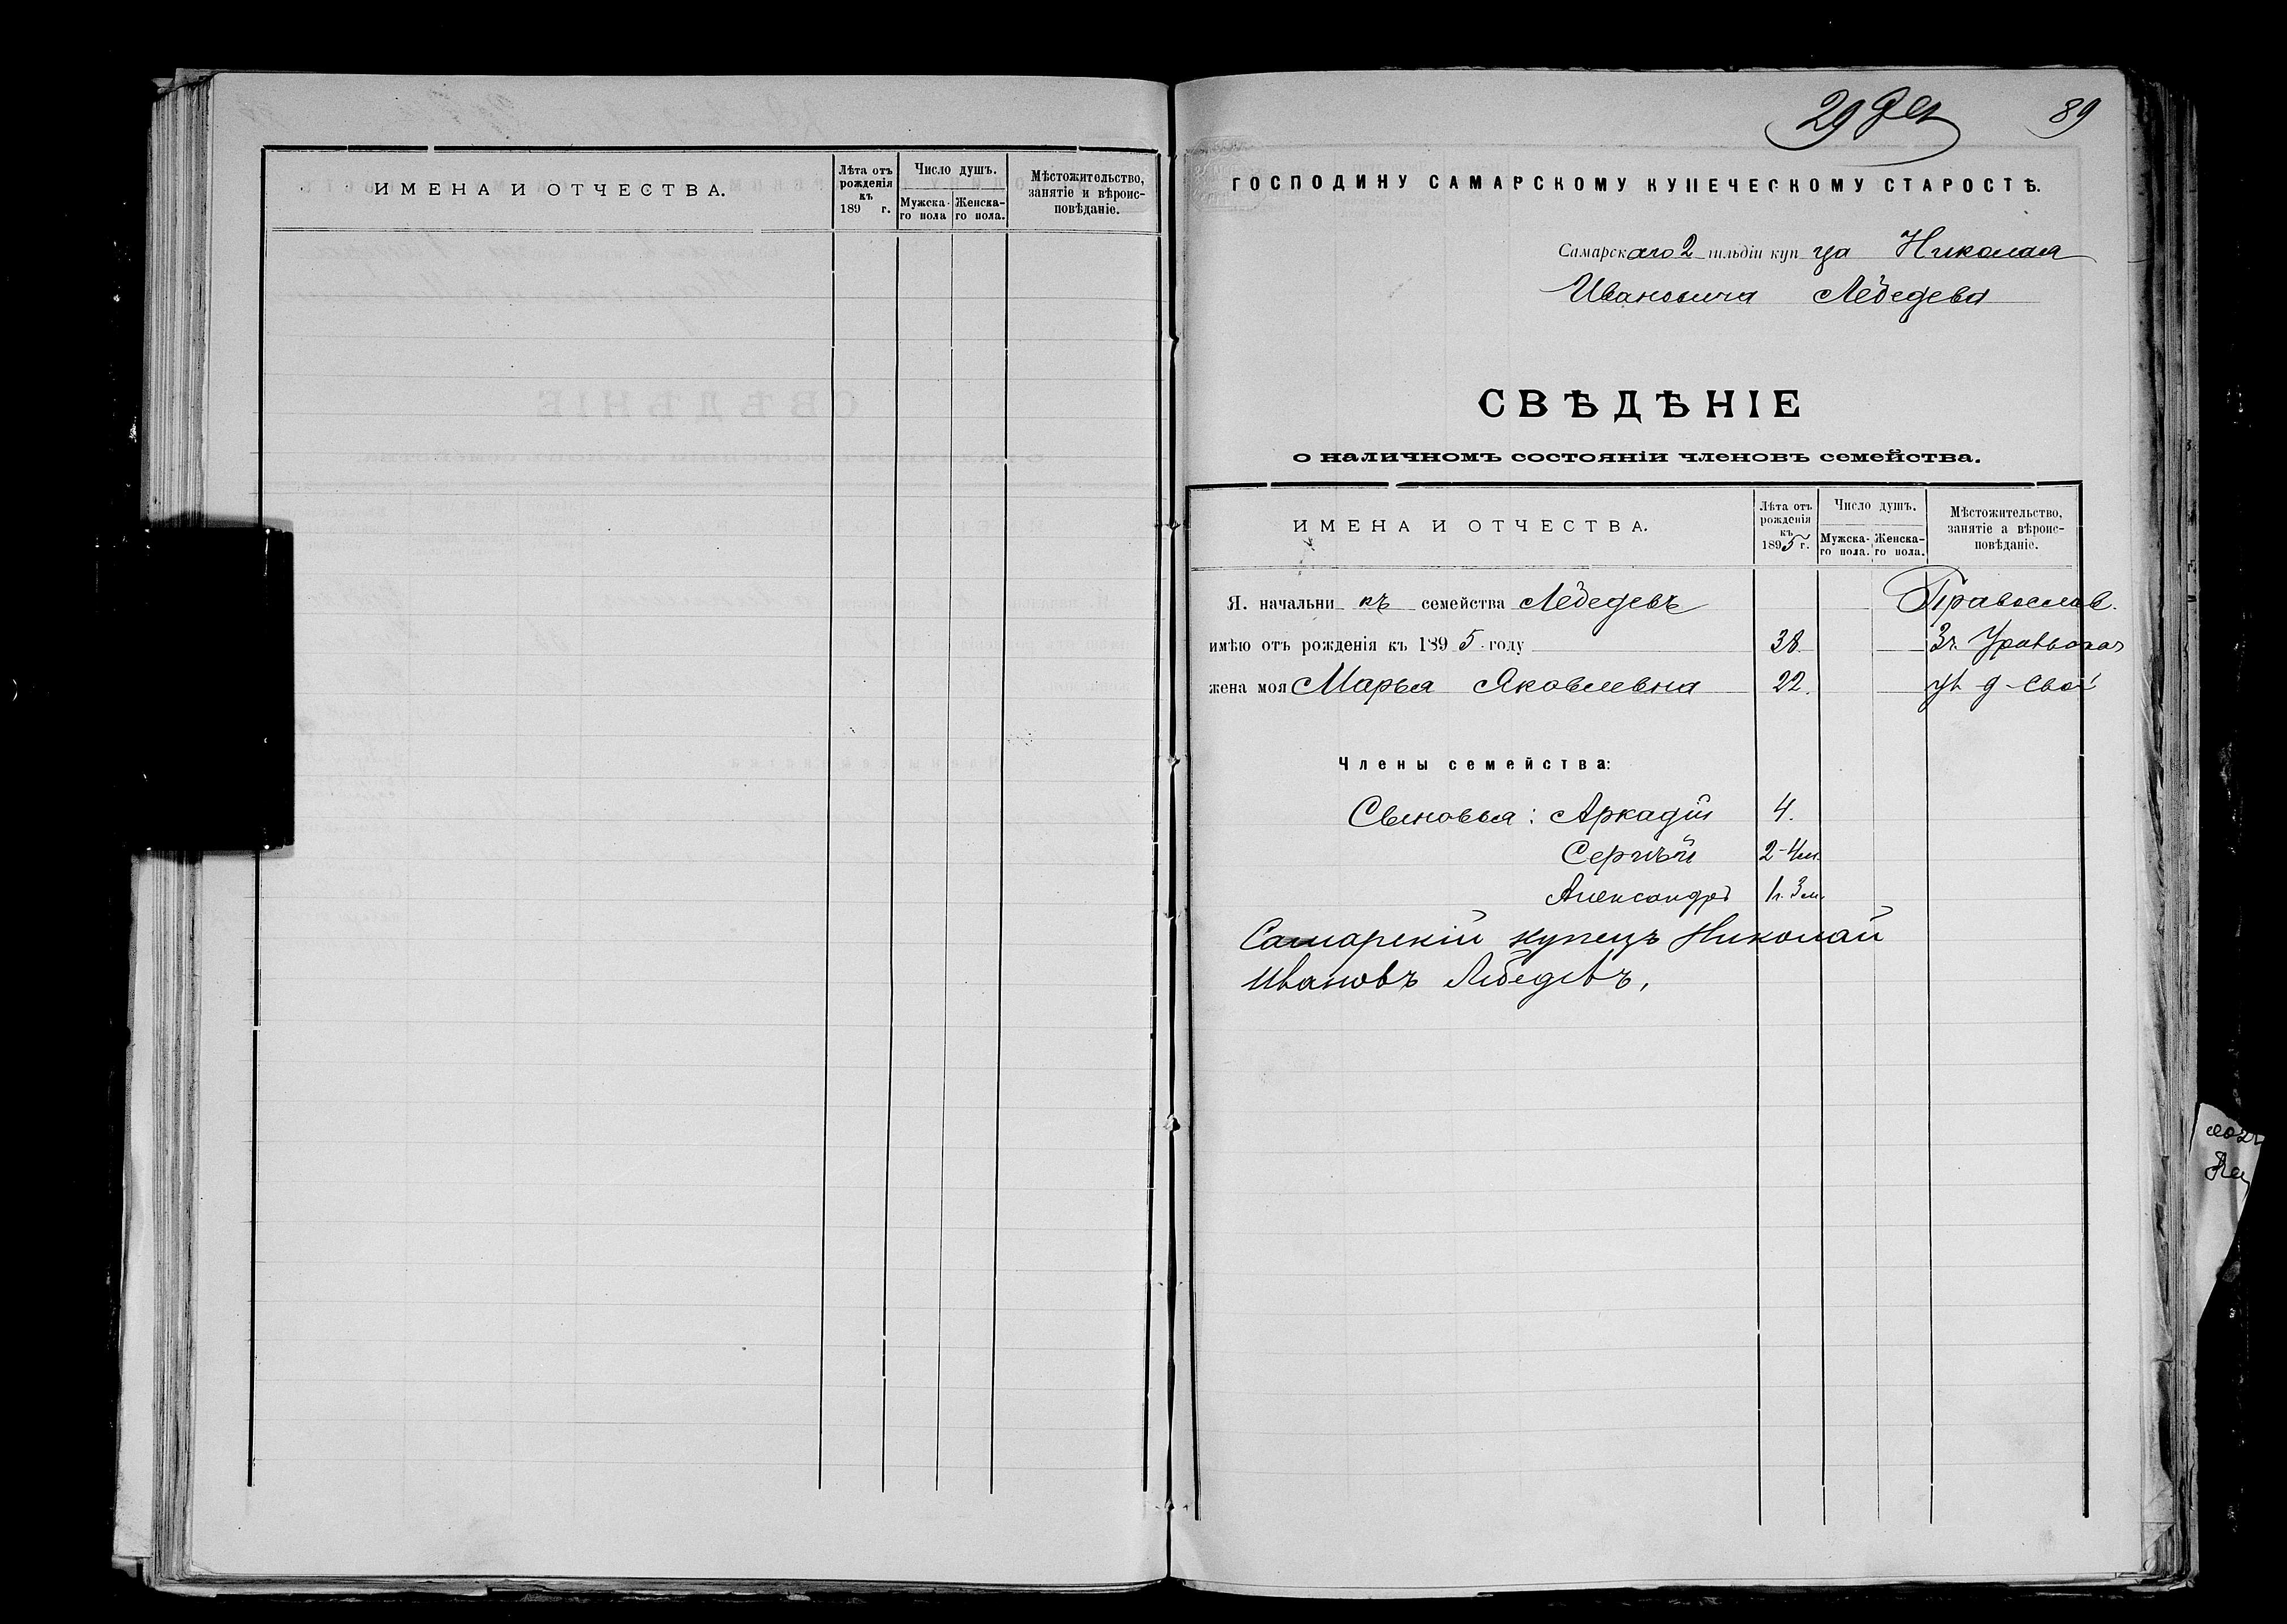 ИМЕНА И ОТЧЕСТВА.
Лѣта отъ рожденія къ 189 г.
Число душъ.
Мужска-го пола
Женска-го пола.
Мѣстожительство, занятіе и вѣроис-повѣданіе.
29 Дек
89
ГОСПОДИНУ САМАРСКОМУ КУПЕЧЕСКОМУ СТАРОСТѢ.
Самарскаго 2 гильдіи купца Николая
Ивановича Лебедева
СВѢДѢНІЕ
о наличномъ состояніи членовъ семейства.
ИМЕНА И ОТЧЕСТВА.
Лѣта отъ рожденія къ 1895 г.
Число душъ.
Мужска-го пола.
Женска-го пола.
Мѣстожительство, занятіе а вѣроис-повѣданіе.
Я. начальникъ семейства Лебедевъ Православ.
имѣю отъ рожденія къ 1895 году 38 3ч.
жена моя Марья Яковлевна 22. д свой
Члены семейства:
Сыновья: Аркадій 4.
Сергѣй 2-4м.
Александръ 1г. 3м.
Самарскій купецъ Николай
Ивановъ Лебедевъ,